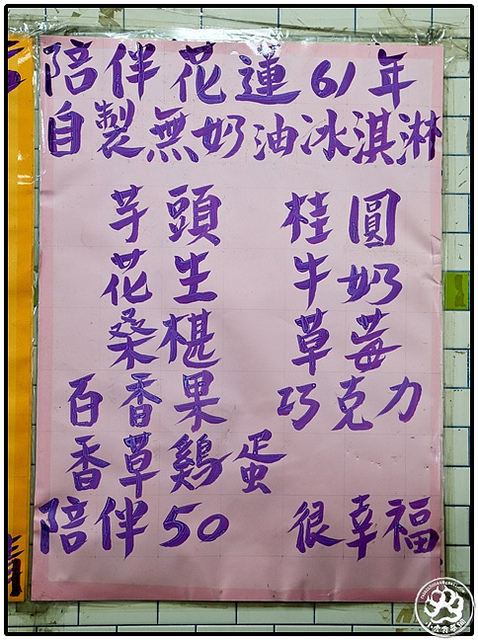 陪伴花蓮61年
自製無奶油冰淇淋
芋頭 桂圓
花生 牛奶
桑椹 草莓
百香果 巧克力
香草鷄蛋
陪伴50 很幸福